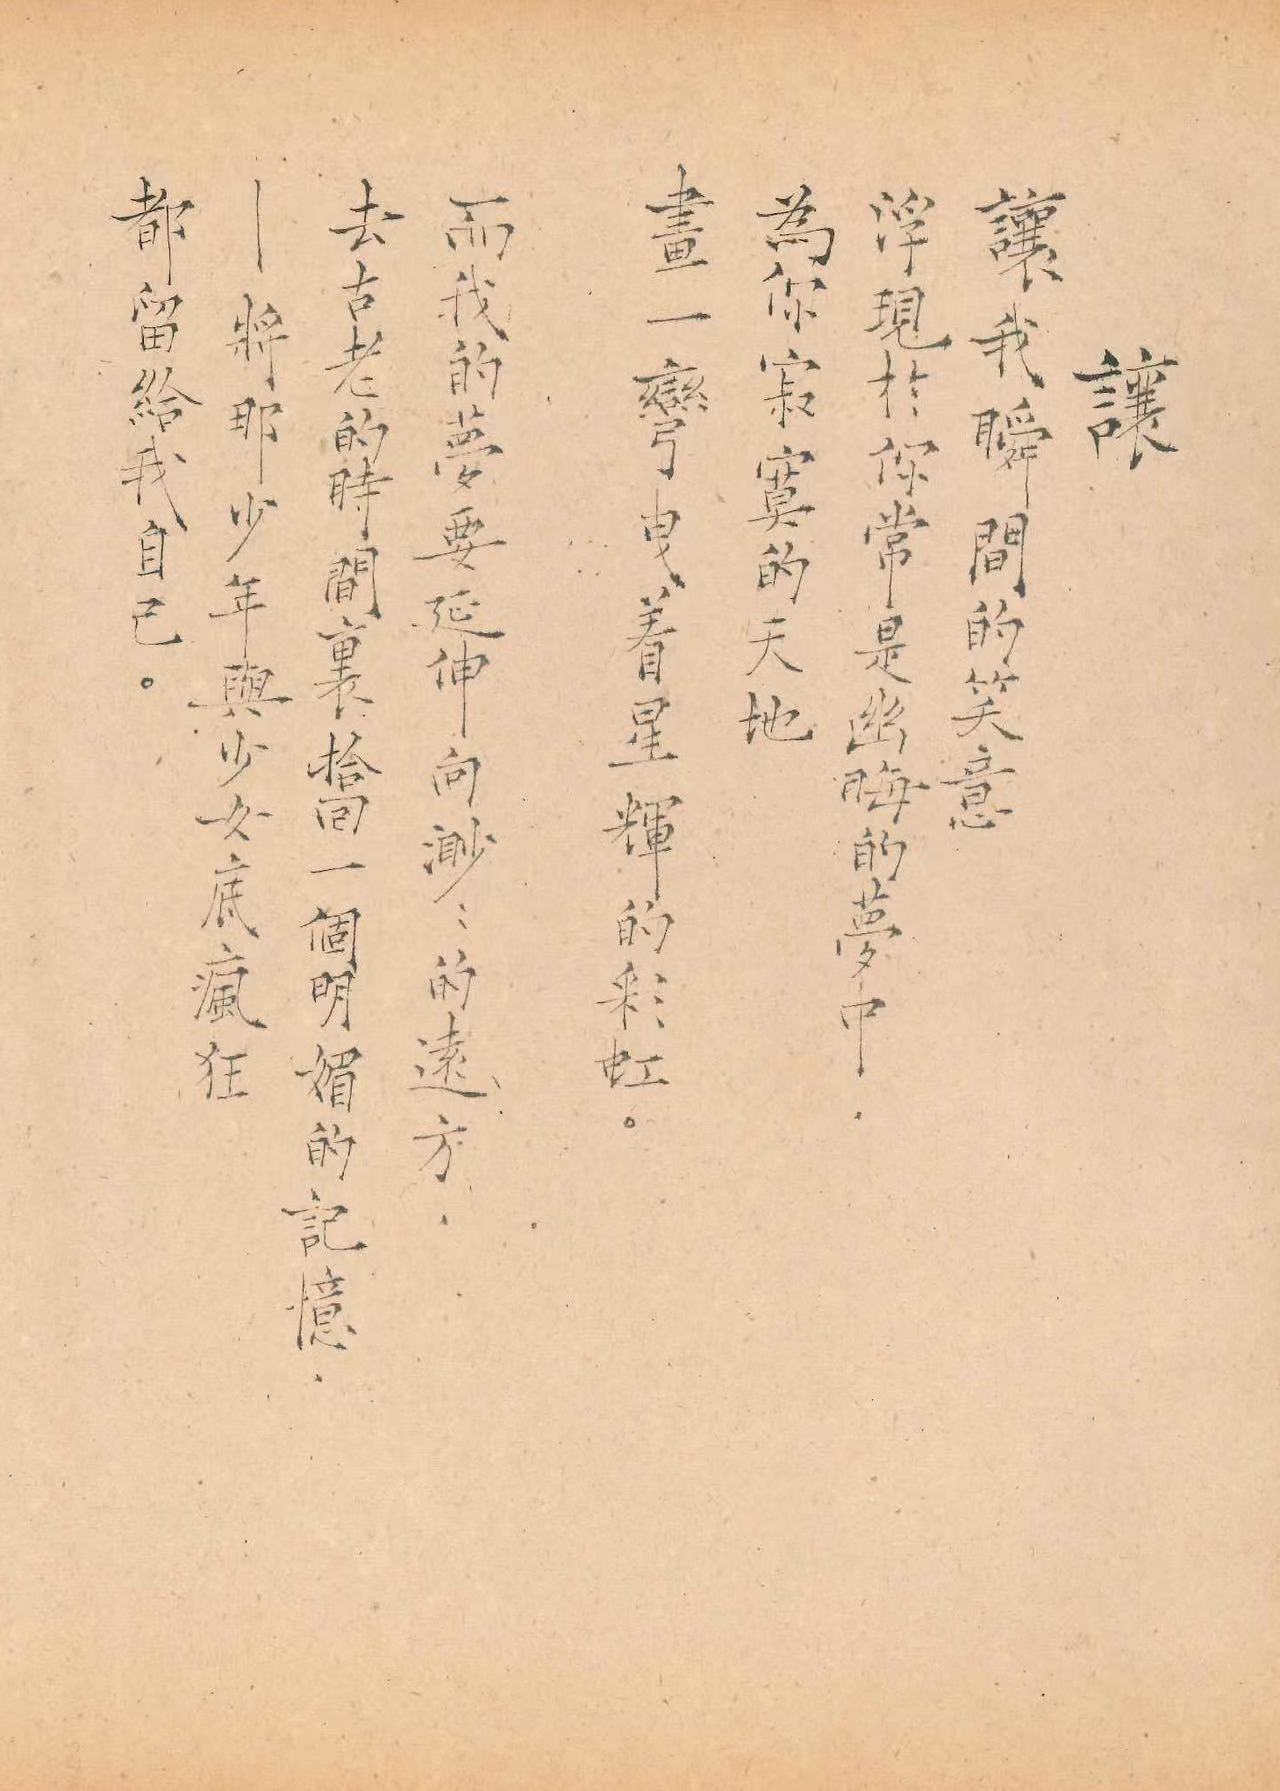 讓
讓我瞬間的笑意
浮現於你常是幽晦的夢中．
為你寂寞的天地
畫一彎曳着星輝的彩虹。
而我的夢要延伸向渺〻的遠方．
去古老的時間裏拾回一個明媚的記憶．
—將那少年與少女底瘋狂
都留給我自己。